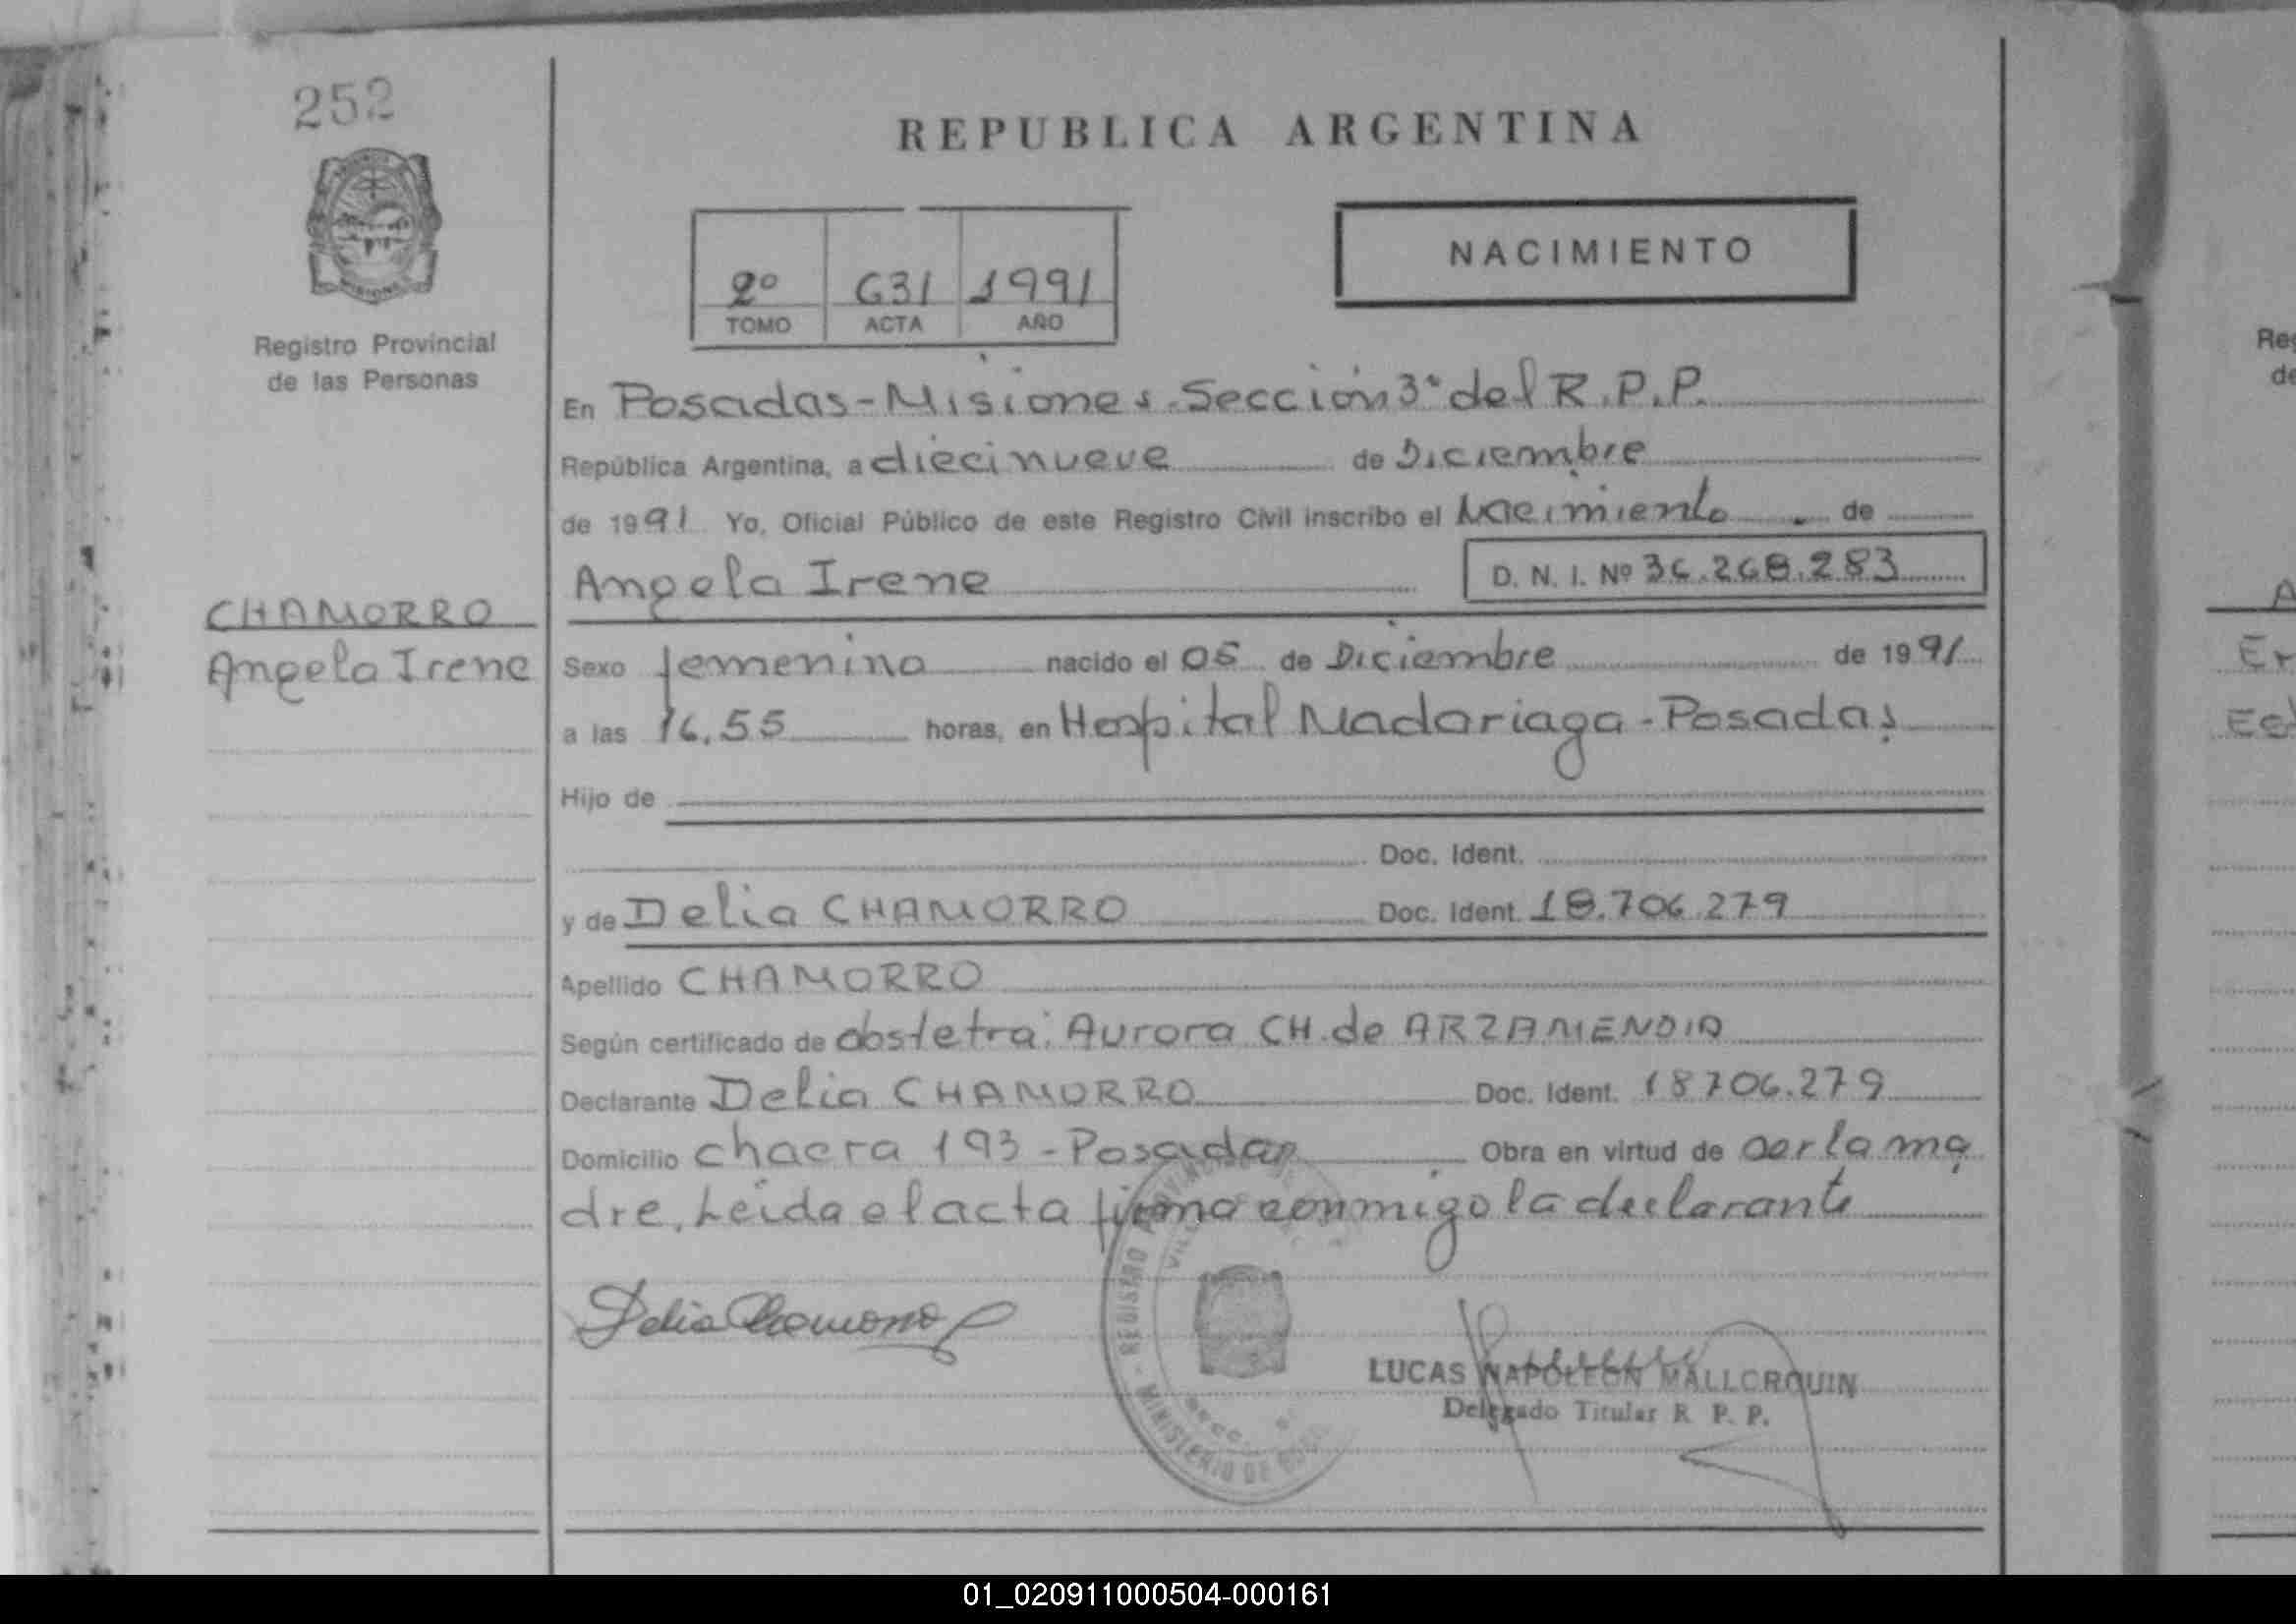 252
REPUBLICA ARGENTINA
NACIMIENTO
2º 631 1991
TOMO ACTA AÑO
Registro Provincial
de las Personas
En Posadas-Misiones-Sección 3ª del R.P.P.
República Argentina, a diecinueve de Diciembre
de 1991 Yo, Oficial Público de este Registro Civil inscribo el Nacimiento de
Angela Irene D. N. I. Nº 36.268.283
CHAMORRO
Angela Irene
Sexo femenino nacido el 05 de Diciembre de 1991
a las 16.55 horas, en Hospital Madariaga-Posadas
Hijo de
Doc. Ident.
y de Delia CHAMORRO Doc. Ident. 18.706.279
Apellido CHAMORRO
Según certificado de obstetra: Aurora CH. de ARZAMENDIA
Declarante Delia CHAMORRO Doc. Ident. 18706.279
Domicilio chacra 193-Posadas Obra en virtud de ser la ma
dre. Leida el acta firma conmigo la declarante
Delia Chamorro
REGISTRO
MINISTERIO DE
LUCAS NAPOLEON MALLORQUIN
Delegado Titular R. P. P.
01_020911000504-000161